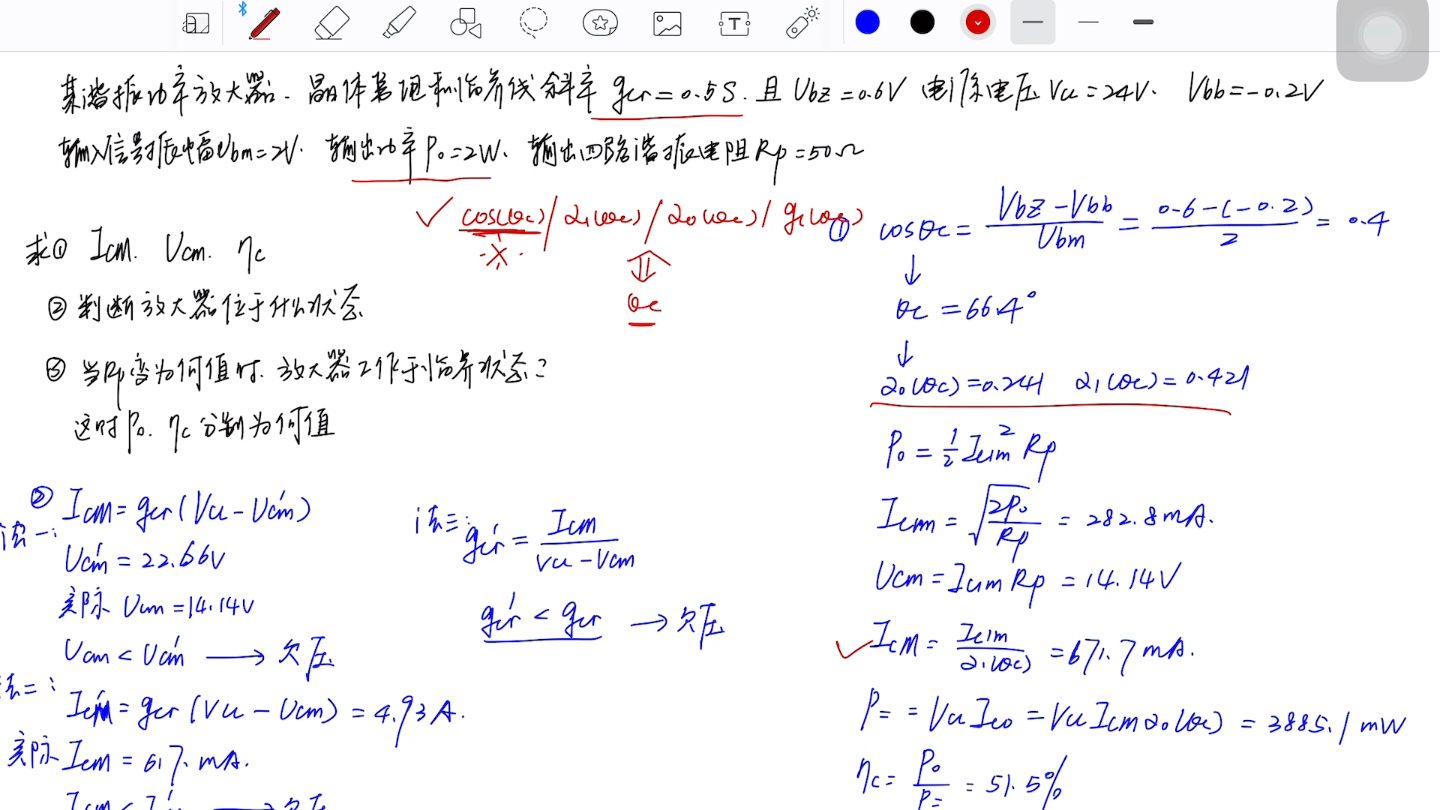 某谐振功率放大器. 晶体管理想临界线斜率 gcr=0.5S. 且 Ubz=0.6V 电源电压 Vcc=24V. Vbb=-0.2V
输入信号振幅Ubm=2V. 输出功率 Po=2W、输出回路谐振电阻 Rp=50Ω
求① IcM. Ucm. ηc
② 判断放大器位于什么状态
③ 当Rp变为何值时. 放大器工作于临界状态?
这时 Po. ηc 分别为何值
✓ cos(θc)/α₁(θc)/α₀(θc)/g₁(θc)
θc
① cosθc = (Vbz-Vbb)/Ubm = (0.6-(-0.2))/2 = 0.4
↓
θc = 66.4°
↓
α₀(θc)=0.241 α₁(θc)=0.421
Po = ½ Ic1m² Rp
Ic1m = √(2Po/Rp) = 282.8mA.
Ucm = Ic1m Rp = 14.14V
✓ IcM = Ic1m/α₁(θc) = 671.7mA.
P= = Vcc Ic0 = Vcc IcM α₀(θc) = 3885.1mW
ηc = Po/P= = 51.5%
②
法一:
IcM = gcr(Vcc-Ucm')
Ucm' = 22.66V
实际 Ucm=14.14V
Ucm < Ucm' → 欠压
法二:
IcM' = gcr(Vcc-Ucm) = 4.93A.
实际 IcM = 617. mA.
IcM < IcM' → 欠压
法三:
gcr' = IcM/(Vcc-Ucm)
gcr' < gcr → 欠压